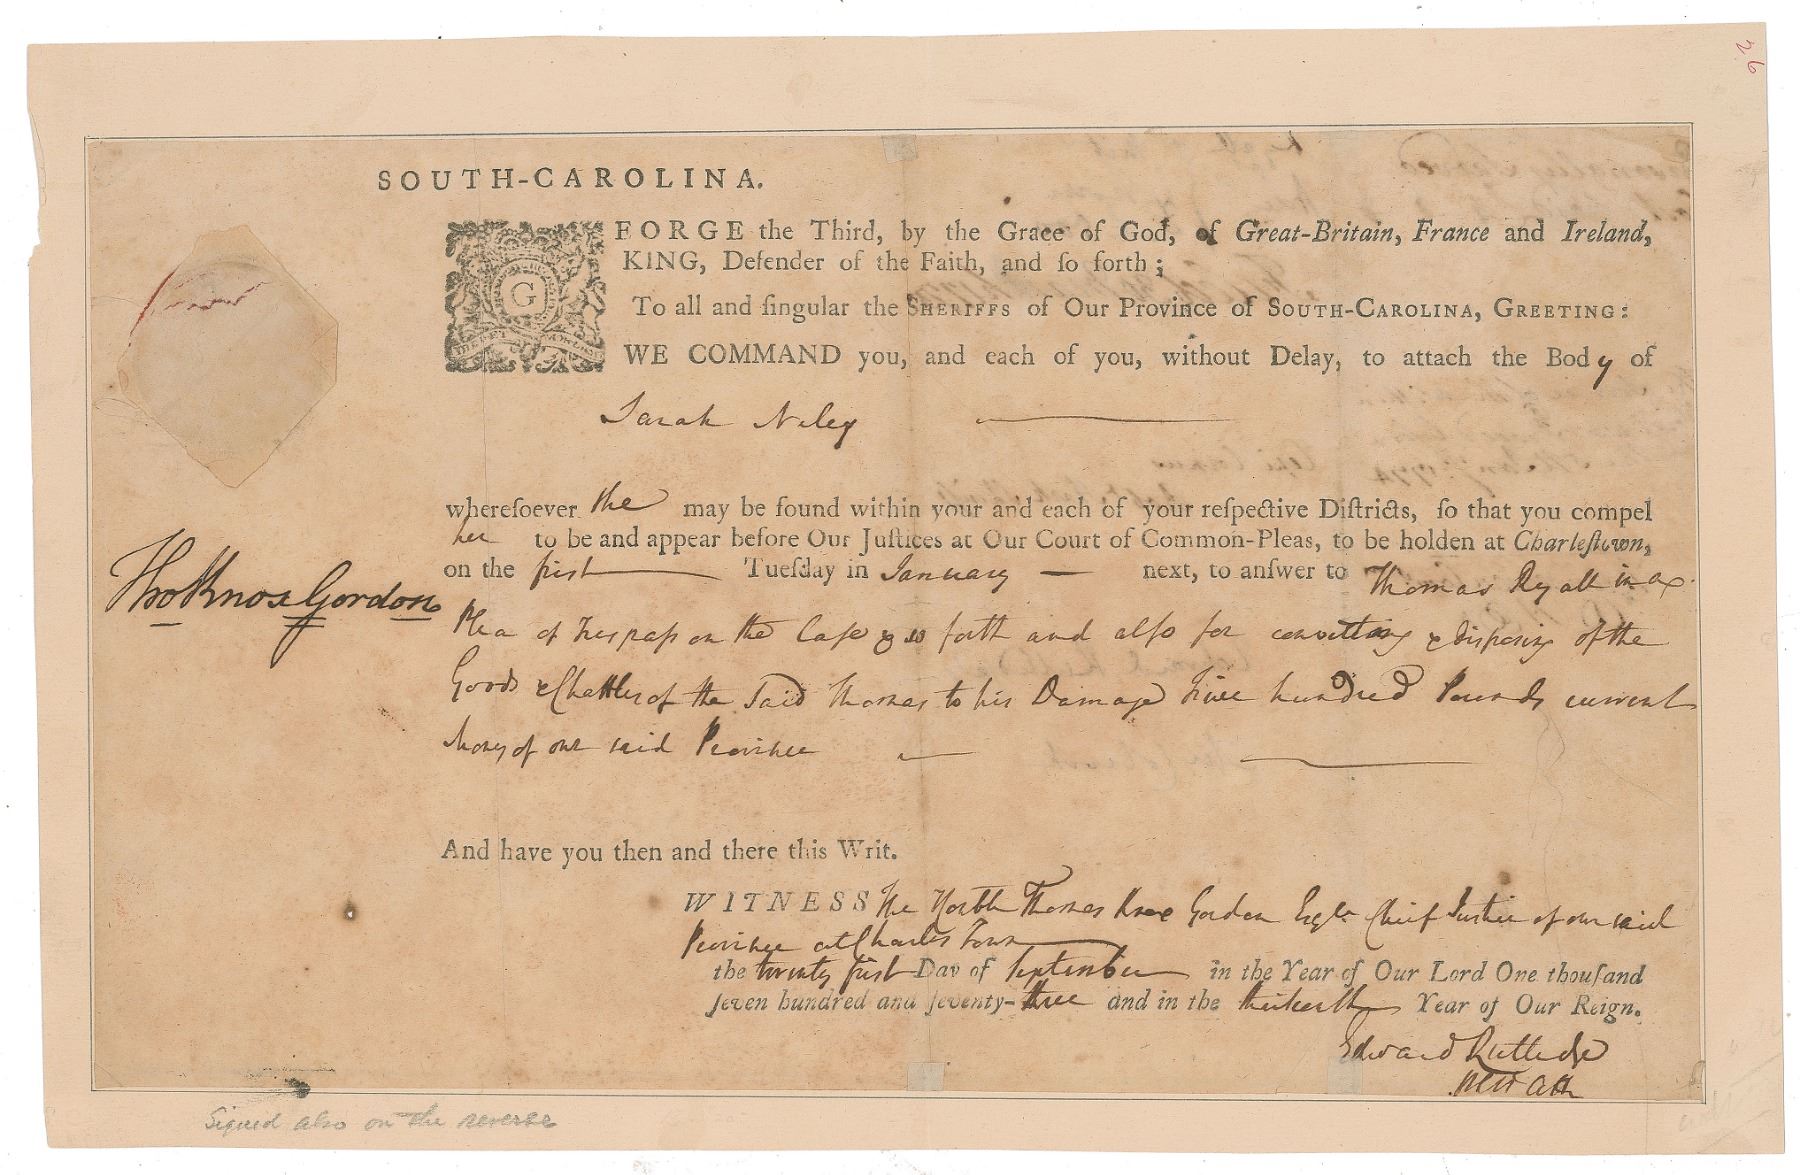 26
SOUTH-CAROLINA.
G
EORGE the Third, by the Grace of God, of Great-Britain, France and Ireland,
KING, Defender of the Faith, and ſo forth;
To all and ſingular the SHERIFFS of Our Province of SOUTH-CAROLINA, GREETING:
WE COMMAND you, and each of you, without Delay, to attach the Body of
Sarah
whereſoever She may be found within your and each of your reſpective Diſtricts, ſo that you compel
her to be and appear before Our Juſtices at Our Court of Common-Pleas, to be holden at Charleſtown,
on the first Tueſday in January next, to anſwer to Thomas Ryall in a
Tho Knox Gordon
Plea of Treſpaſs on the Caſe & so forth and alſo for converting & disposing of the
Goods & Chattles of the Said Thomas to his Damage Five hundred Pounds current
Money of our said Province
And have you then and there this Writ.
WITNESS The Honble Thomas Knox Gordon Esqr. Chief Justice of our said
Province at Charles Town
the twenty first Day of September in the Year of Our Lord One thouſand
ſeven hundred and ſeventy-three and in the thirteenth Year of Our Reign.
Edward Rutledge
Atty
Signed also on the reverse